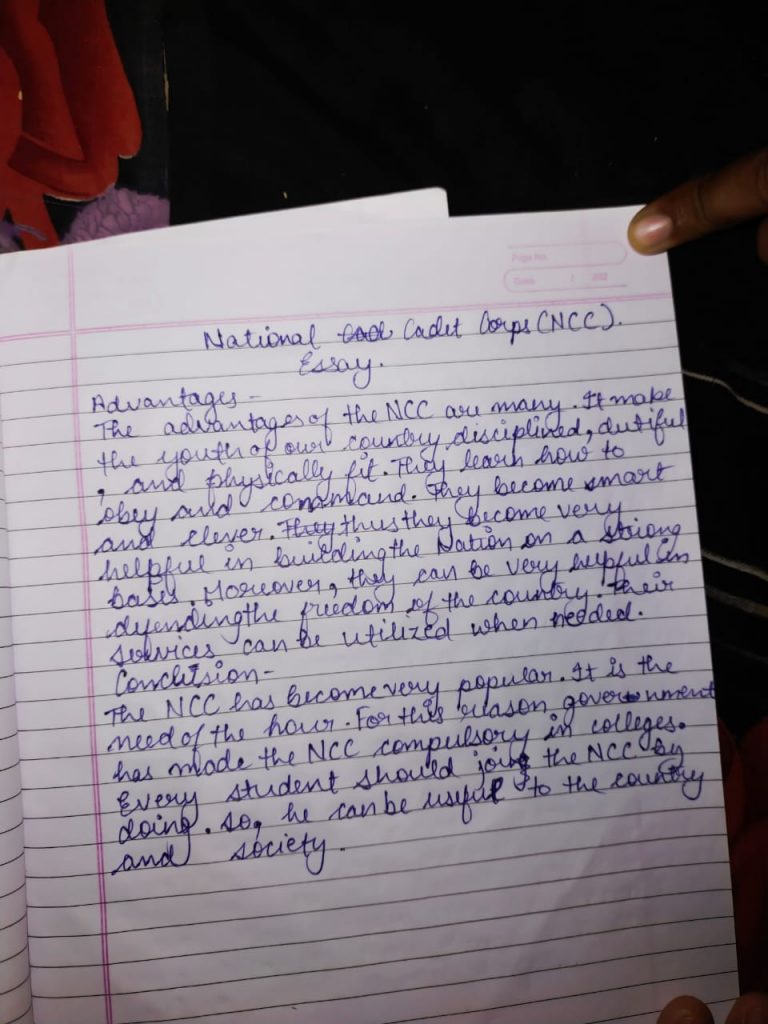 Page No.
Date / 202
National Cadet Corps (NCC).
Essay.
Advantages -
The advantages of the NCC are many. It make
the youth of our country disciplined, dutiful
, and physically fit. They learn how to
obey and command. They become smart
and clever. thus they become very
helpful in building the Nation on a strong
bases. Moreover, they can be very helpful in
defending the freedom of the country. Their
services can be utilized when needed.
Conclusion -
The NCC has become very popular. It is the
need of the hour. For this reason government
has made the NCC compulsory in colleges.
Every student should join the NCC by
doing. so, he can be useful to the country
and society.